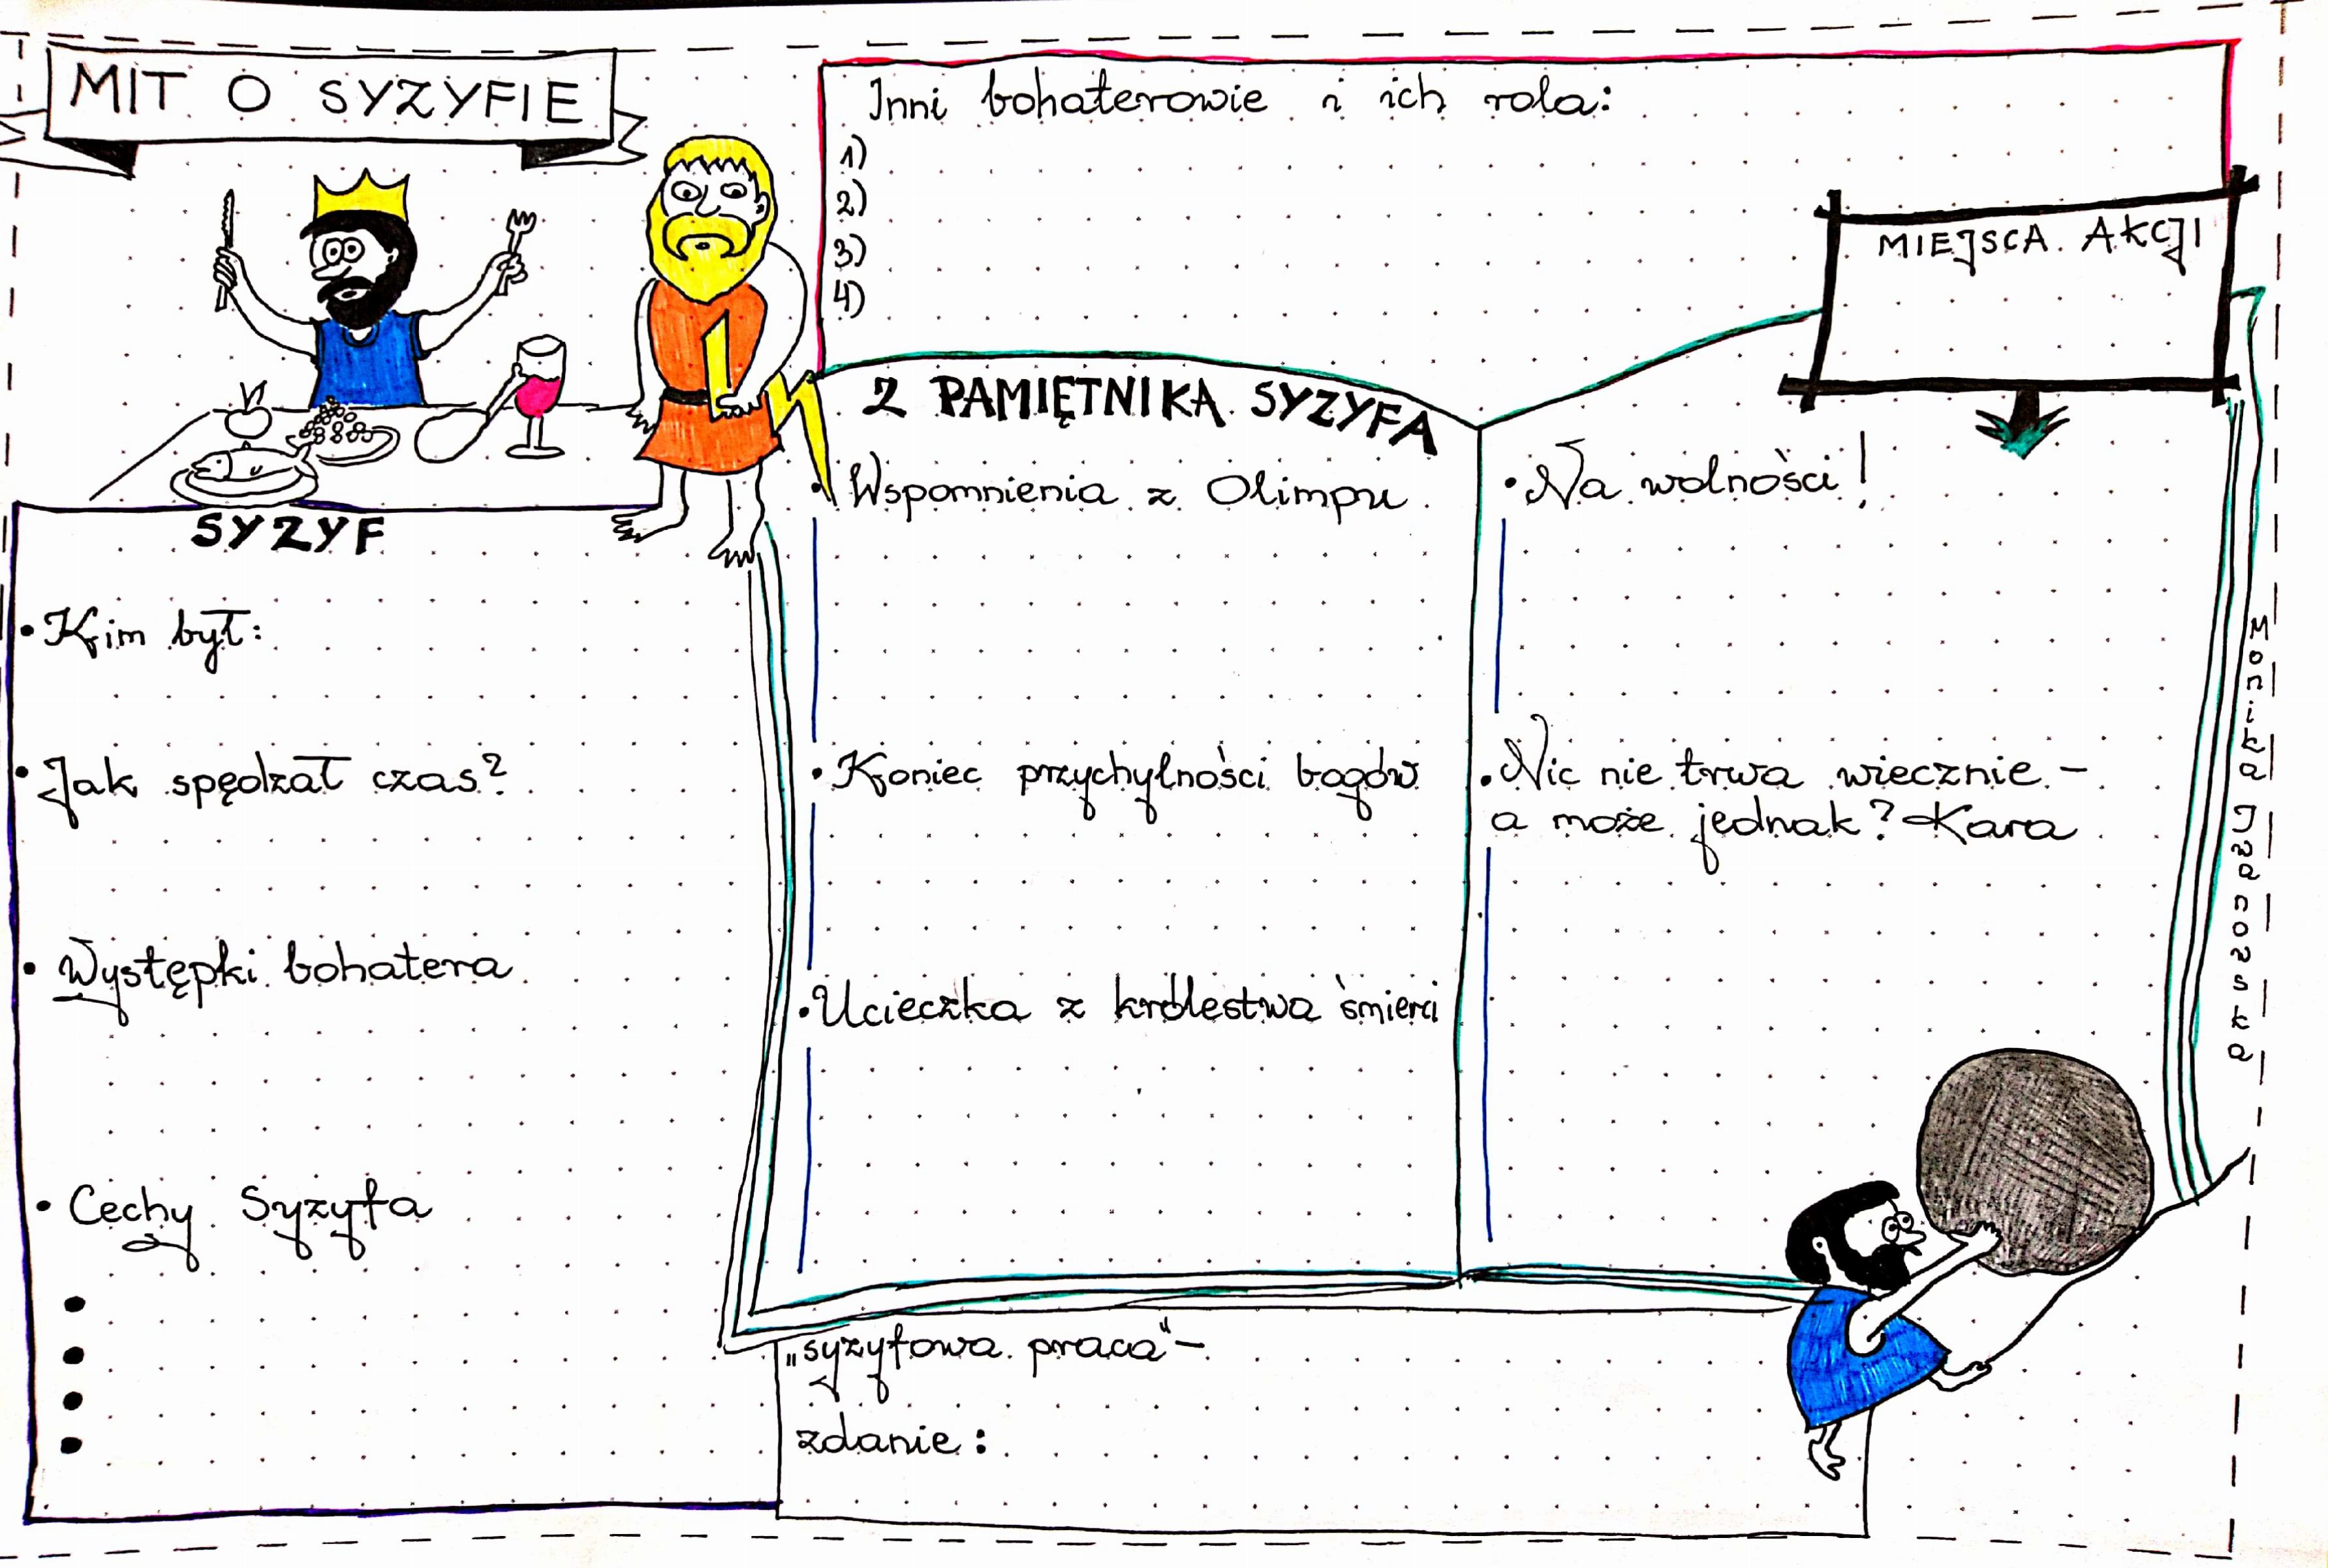 MIT O SYZYFIE
Inni bohaterowie i ich rola:
1)
2)
3)
4)
MIEJSCA AKCJI
SYZYF
• Kim był:
• Jak spędzał czas?
• Występki bohatera
• Cechy Syzyfa
Z PAMIĘTNIKA SYZYFA
• Wspomnienia z Olimpu
• Koniec przychylności bogów
• Ucieczka z królestwa śmierci
• Na wolności!
• Nic nie trwa wiecznie –
a może jednak? Kara
„syzyfowa praca" –
zdanie:
Monika Iwanowska